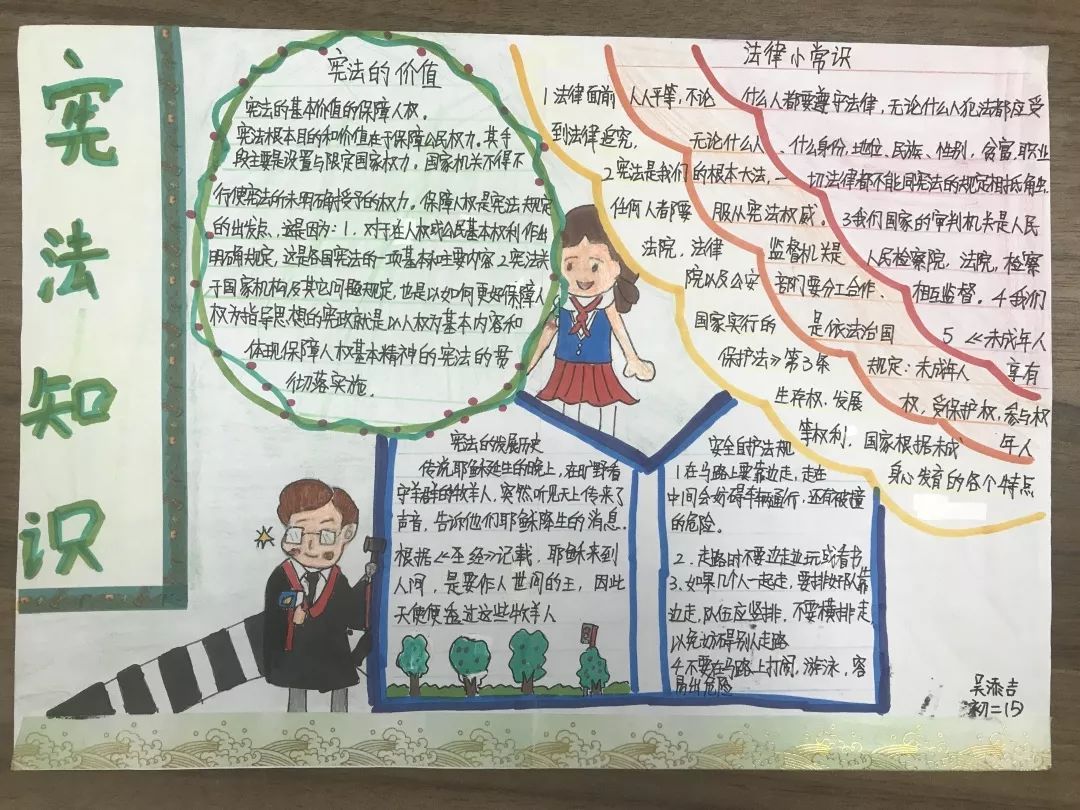 宪法知识
宪法的价值
宪法的基本价值的保障人权。
宪法根本目的和价值在于保障公民权力。其手
段主要是设置与限定国家权力，国家机关不得不
行使宪法所未明确授予的权力。保障人权是宪法规定
的出发点，这是因为：1.对于在人权或公民基本权利作出
明确规定，这是各国宪法的一项基本和主要内容2.宪法关
于国家机构及其它问题规定，也是以如何更好保障人
权为指导思想的宪政就是以人权为基本内容和
体现保障人权基本精神的宪法的贯
彻落实施。
法律小常识
1法律面前 人人平等，不论 什么人都要遵守法律，无论什么人犯法都应受
到法律追究， 无论什么人、什么身份，地位、民族、性别，贫富，职业
2宪法是我们的根本大法，一切法律都不能同宪法的规定相抵角虫
任何人者阝要 服从宪法权威。3我们国家的审判机关是人民
法院，法律 监督机关是 人民检察院，法院，检察
院以及公安 部门要分工合作， 相互监督。4我们
国家实行的 是依法治国 5《未成年人
保护法》第3条 规定：未成年人 享有
生存权，发展 权，受保护权，参与权
等权利，国家根据未成 年人
身心发育的各个特点
宪法的发展历史
传说耶稣诞生的晚上，在旷野看
守羊群的牧羊人，突然听见天上传来了
声音，告诉他们耶稣降生的消息。
根据《圣经》记载，耶稣来到
人间，是要作人世间的王，因此
天使便透过这些牧羊人
安全自护法规
1在马路上要靠边走，走在
中间会妨碍车辆通行，还有被撞
的危险。
2.走路时不要边走边玩或看书
3.如果几个一起走，要排好队靠
边走，队伍应竖排，不要横排走，
以免妨碍别人走路
4不要在马路上打闹，游泳，容
易出危险
吴添吉
初二15